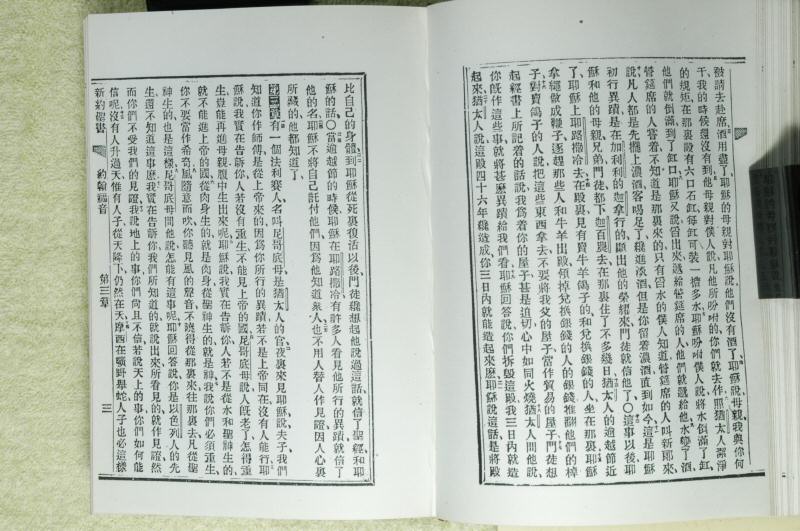 被請去赴席酒用盡了耶穌的母親對耶穌說他們沒有酒了耶穌說母親我與你何
干我的時候還沒有到他母親對僕人說凡他所吩咐的你們就去作那猶太人潔淨
的規矩在那裏設有六口石缸每缸可裝一擔多水耶穌吩咐僕人說將水倒滿了缸
他們就倒滿了缸口耶穌又說舀出來送給管筵席的人他們就送給他水變了酒
管筵席的人嘗着不知道是那裏來的只有舀水的僕人知道管筵席的人叫新郎來
說凡人都是先擺上濃酒客喝足了纔進淡酒但是你留着濃酒直到如今這是耶穌
初行異蹟是在加利利的迦拿行的顯出他的榮耀來門徒就信他了〇這事以後耶
穌和他的母親兄弟門徒都下迦百農去在那裏住了不多幾日猶太人的逾越節近
了耶穌上耶路撒冷去在殿裏見有賣牛羊鴿子的和兌換銀錢的人坐在那裏就
拿繩做成鞭子逐趕那些人和牛羊出殿傾掉兌換銀錢的人的銀錢推翻他們的棹
子對賣鴿子的人說把這些東西拿去不要將我父的屋子當作貿易的屋子門徒想
起經書上所記着的話說我為着你的屋子甚是迫切心中如同火燒猶太人問他說
你既作這些事就將甚麼異蹟給我們看耶穌回答說你們拆毀這殿我三日內就造
起來猶太人說這殿四十六年纔造成你三日內就能造起來麼耶穌說這話是將殿
比自己的身體到耶穌從死裏復活以後門徒纔想起他說過這話就信了聖經和耶
穌的話〇當逾越節的時候耶穌在耶路撒冷有許多人看見他所行的異蹟就信了
他的名耶穌不將自己託付他們因為他知道衆人也不用人替人作見證因人心裏
所藏的他都知道了
第三章有一個法利賽人名叫尼哥底母是猶太人的官夜裏來見耶穌說夫子我們
知道你作師傅是從上帝來的因為你所行的異蹟若不是上帝同在沒有人能行耶
穌說我實在告訴你人若沒有重生不能見上帝的國尼哥底母說人既老了怎得重
生豈能再進母親腹中生出來呢耶穌說我實在告訴你人若不是從水和聖神生的
就不能進上帝的國從肉身生的就是肉身從聖神生的就是神我說你們必須重生
你不要當作希奇風隨意而吹你聽見風的聲音不曉得從那裏來往那裏去凡從聖
神生的也是這樣尼哥底母問他說怎能有這事呢耶穌回答說你是以色列人的先
生還不知道這事麼我實在告訴你我們所知道的就說出來所看見的就作見證然
而你們不受我們的見證我說地上的事你們尚且不信若說天上的事你們如何能
信呢沒有人升過天惟有人子從天降下仍然在天摩西在曠野舉蛇人子也必這樣
新約聖書
約翰福音
第三章
三